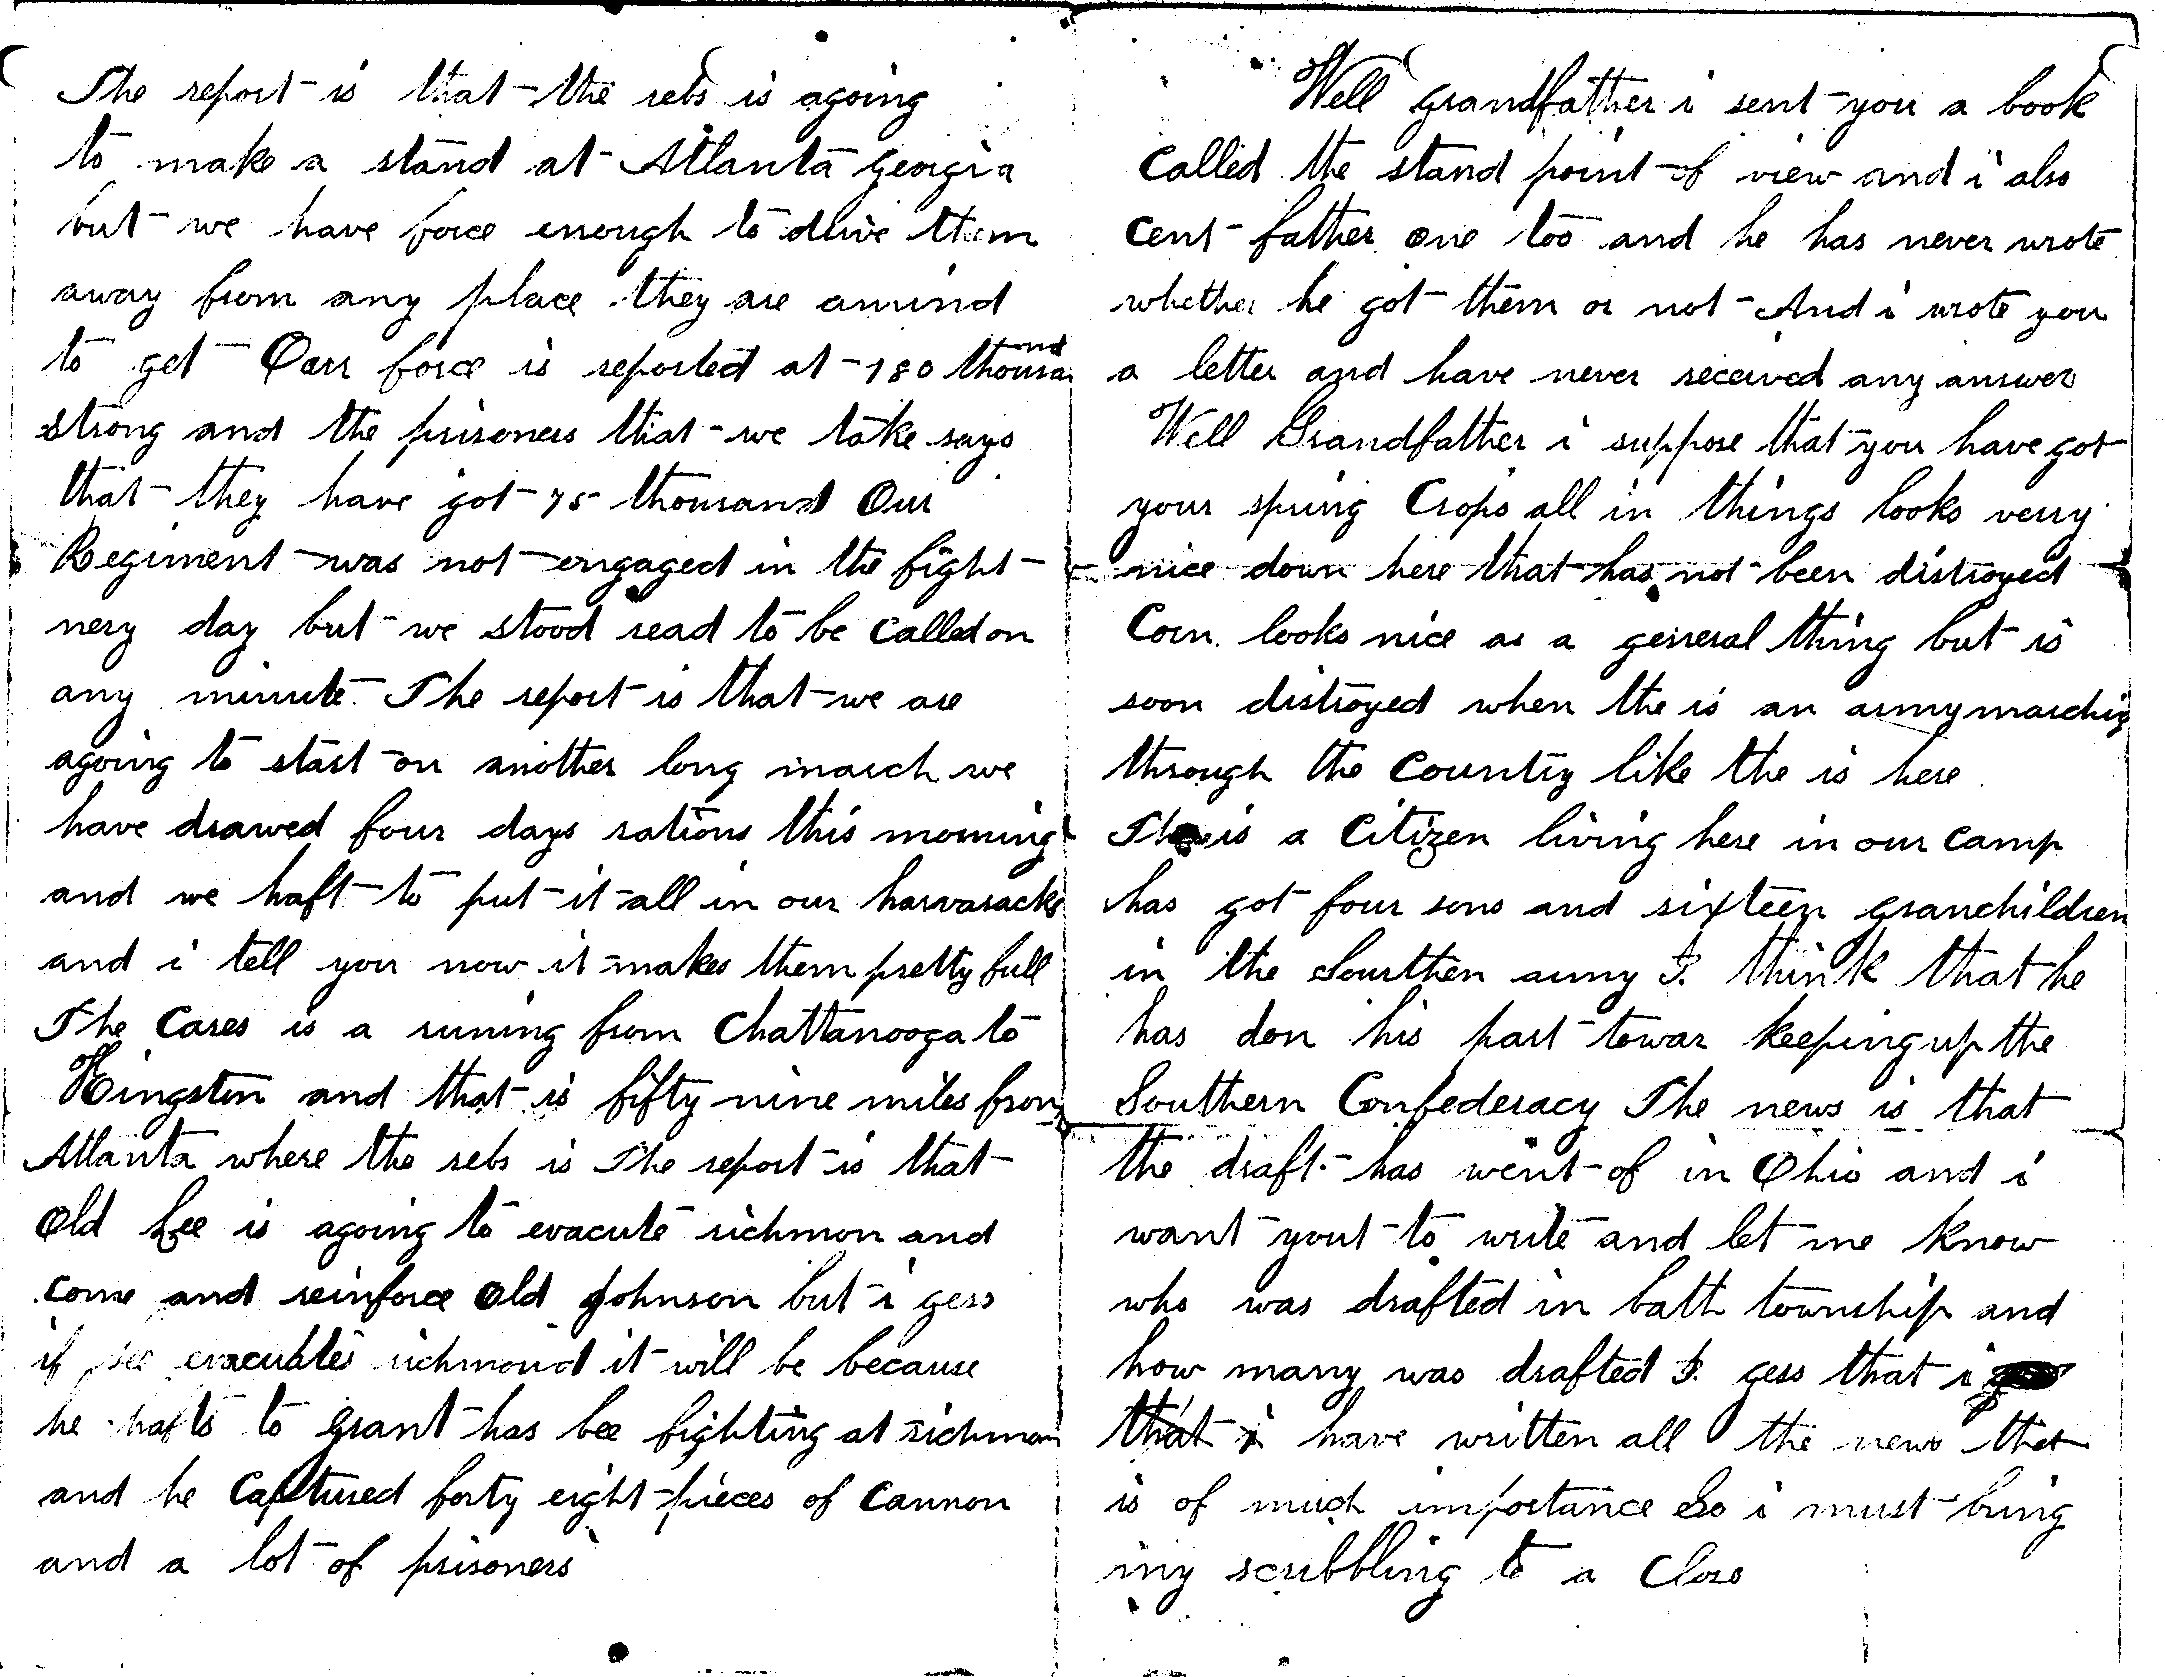 The report is that the rebs is agoing
to make a stand at Atlanta georgia
but we have force enough to drive them
away from any place they are amind
to get Oarr force is reported at 180 thousand
strong and the prisoners that we take says
that they have got 75 thousand Our
Regiment was not engaged in the fight
nery day but we stood read to be called on
any minute The report is that we are
agoing to start on another long march we
have drawed four days rations this morning
and we haft to put it all in our harvasacks
and i tell you now it makes them pretty full
The Cares is a runing from Chattanooga to
Kingston and that is fifty nine miles from
Atlanta where the rebs is The report is that
Old Lee is agoing to evacute richmon and
come and reinforce old Johnson but i gess
if evacuates richmond it will be because
he hafts to grant has bee fighting at richmon
and he Captured forty eight pieces of Cannon
and a lot of prisoners
Well grandfather i sent you a book
Called the stand point of view and i also
Cent father one too and he has never wrote
whether he got them or not And i wrote you
a letter and have never received any answer
Well Grandfather i suppose that you have got
your spring Crops all in things looks verry
nice down here that has not been distroyed
Corn looks nice as a general thing but is
soon distroyed when the is an army marching
through the Country like the is here
The is a Citizen living here in our camp
has got four sons and sixteen granchildren
in the Sourthen army I think that he
has don his part towar keeping up the
Southern Confederacy The news is that
the draft has went of in Ohio and i
want yout to write and let me know
who was drafted in bath township and
how many was drafted I gess that i
that i have written all the news that
is of much importance So i must bring
my scribbling to a Close